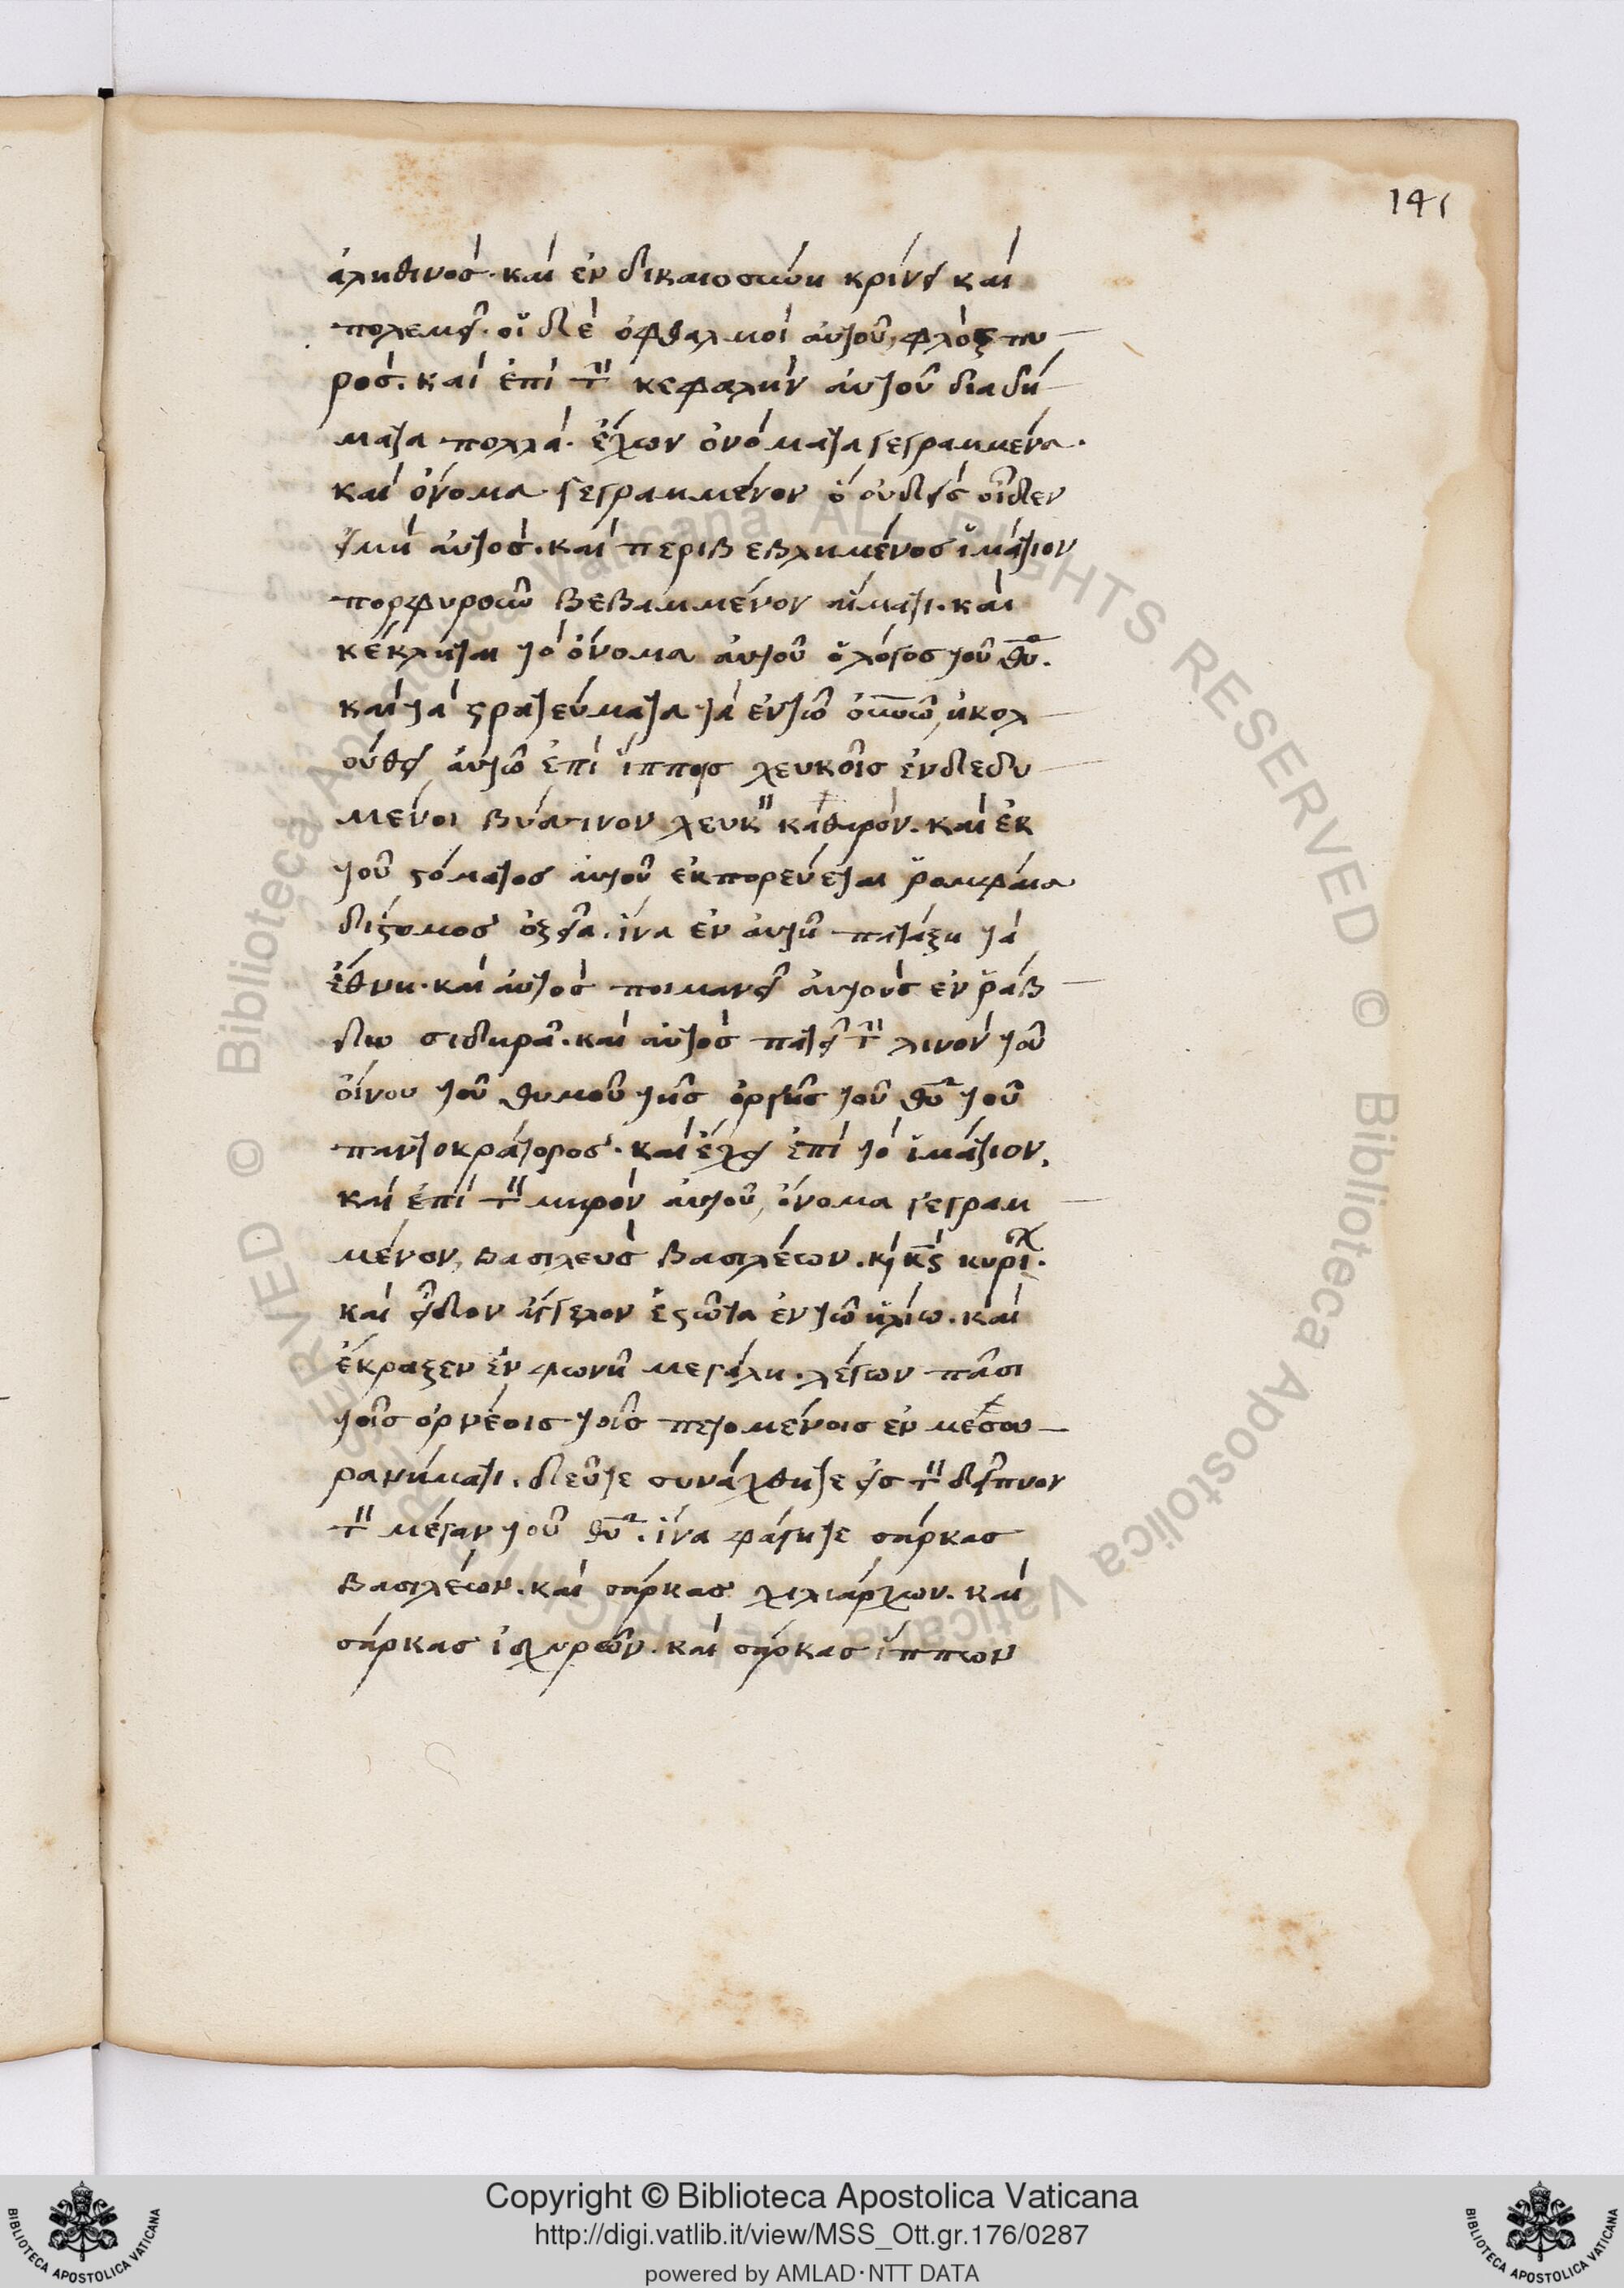 141
ἀληθινός· καὶ ἐν δικαιοσύνη κρίνει καὶ
πολεμεῖ· οἱ δὲ ὀφθαλμοὶ αὐτοῦ, φλὸξ πυ
ρός. καὶ ἐπὶ τὴν κεφαλὴν αὐτοῦ διαδή
ματα πολλά· ἔχων ὀνόματα γεγραμμένα·
καὶ ὄνομα γεγραμμένον ὃ οὐδεὶς οἶδεν
εἰ μὴ αὐτός. καὶ περιβεβλημένος ἱμάτιον
πορφυροῦν βεβαμμένον αἵματι. καὶ
κέκληται τὸ ὄνομα αὐτοῦ ὁ λόγος τοῦ θυ.
καὶ τὰ στρατεύματα τὰ ἐν τῶ οὐνῶ, ἠκολ
ούθει αὐτῶ ἐπὶ ἵπποις λευκοῖς ἐνδεδυ
μένοι βύσσινον λευκὸν καθαρόν. καὶ ἐκ
τοῦ στόματος αὐτοῦ ἐκπορεύεται ῥομφαία
δίστομος ὀξεῖα. ἵνα ἐν αὐτῆ πατάξη τὰ
ἔθνη· καὶ αὐτὸς ποιμανεῖ αὐτοὺς ἐν ῥάβ
δω σιδηρᾶ. καὶ αὐτὸς πατεῖ τὴν λινὸν τοῦ
οἴνου τοῦ θυμοῦ τῆς ὀργῆς τοῦ θυ τοῦ
παντοκράτορος· καὶ ἔχει ἐπὶ τὸ ἱμάτιον,
καὶ ἐπὶ τὸν μηρὸν αὐτοῦ, ὄνομα γεγραμ
μένον, βασιλεὺς βασιλέων. κ κς κυρί.
καὶ εἶδον ἄγγελον ἑστῶτα ἐν τῶ ἡλίω. καὶ
ἔκραξεν ἐν φωνῆ μεγάλη. λέγων πᾶσι
τοῖς ὀρνέοις τοῖς πετομένοις ἐν μεσου
ρανήματι. δεῦτε συνάχθητε εἰς τὸν δεῖπνον
τὸν μέγαν τοῦ θυ. ἵνα φάγητε σάρκας
βασιλέων. καὶ σάρκας χιλιάρχων. καὶ
σάρκας ἰσχυρῶν. καὶ σάρκας ἵππων
Copyright © Biblioteca Apostolica Vaticana
http://digi.vatlib.it/view/MSS_Ott.gr.176/0287
powered by AMLAD·NTT DATA